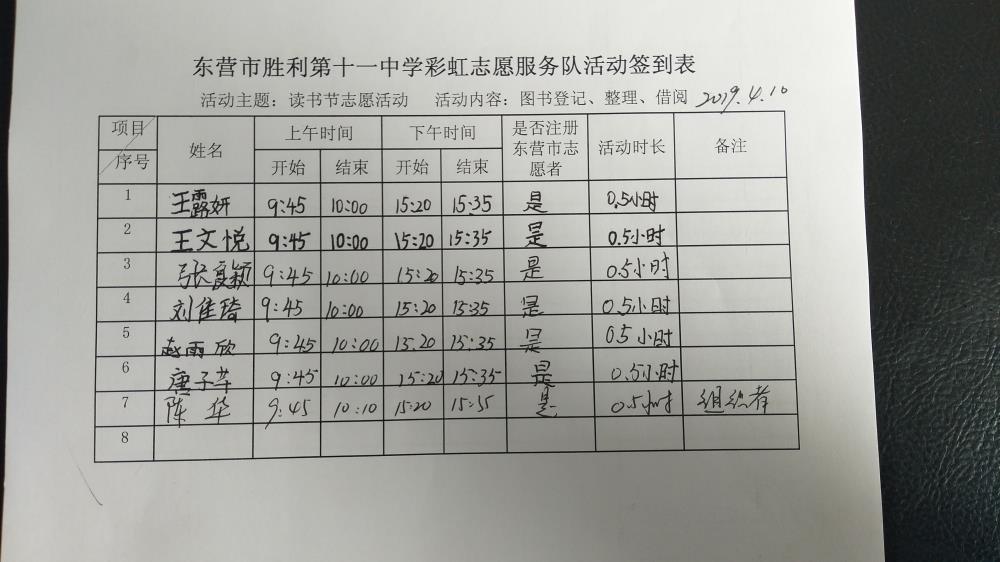 东营市胜利第十一中学彩虹志愿服务队活动签到表
活动主题：读书节志愿活动 活动内容：图书登记、整理、借阅 2019.4.10
项目 序号 姓名 上午时间 下午时间 是否注册东营市志愿者 活动时长 备注
开始 结束 开始 结束
1 王露妍 9:45 10:00 15:20 15:35 是 0.5小时
2 王文悦 9:45 10:00 15:20 15:35 是 0.5小时
3 张夏颖 9:45 10:00 15:20 15:35 是 0.5小时
4 刘佳琦 9:45 10:00 15:20 15:35 是 0.5小时
5 赵雨欣 9:45 10:00 15:20 15:35 是 0.5小时
6 唐子 9:45 10:00 15:20 15:35 是 0.5小时
7 陈华 9:45 10:10 15:20 15:35 是 0.5小时 组织者
8